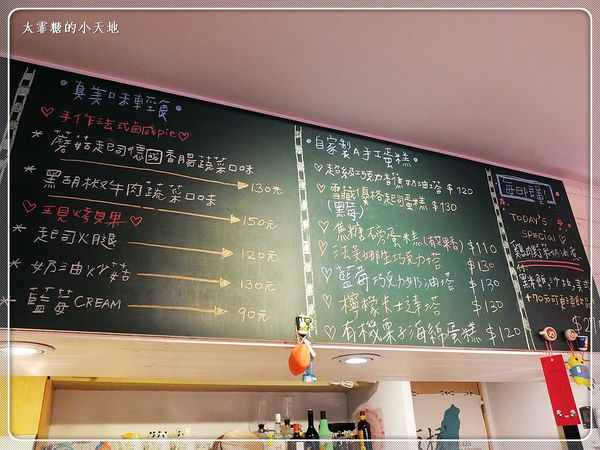 太霏糖的小天地
真美味輕食
♡手作法式鹹鹹pie♡
* 蘑菇起司德國香腸蔬菜口味
130元
* 黑胡椒牛肉蔬菜口味
150元
♡現烤貝果♡
* 起司火腿
120元
* 奶油炒菇
130元
* 藍莓CREAM
90元
自家製手工蛋糕
♡超級巧克力香蕉奶油塔 $120
♡雪藏優格起司蛋糕 $130
(藍莓)
♡焦糖磅蛋糕 $110
♡法芙娜生巧克力塔 $130
♡藍莓巧克力奶油塔 $130
♡檸檬卡士達塔 $130
♡有機栗子海綿蛋糕 $120
每日限量
TODAY'S
SPECIAL♡